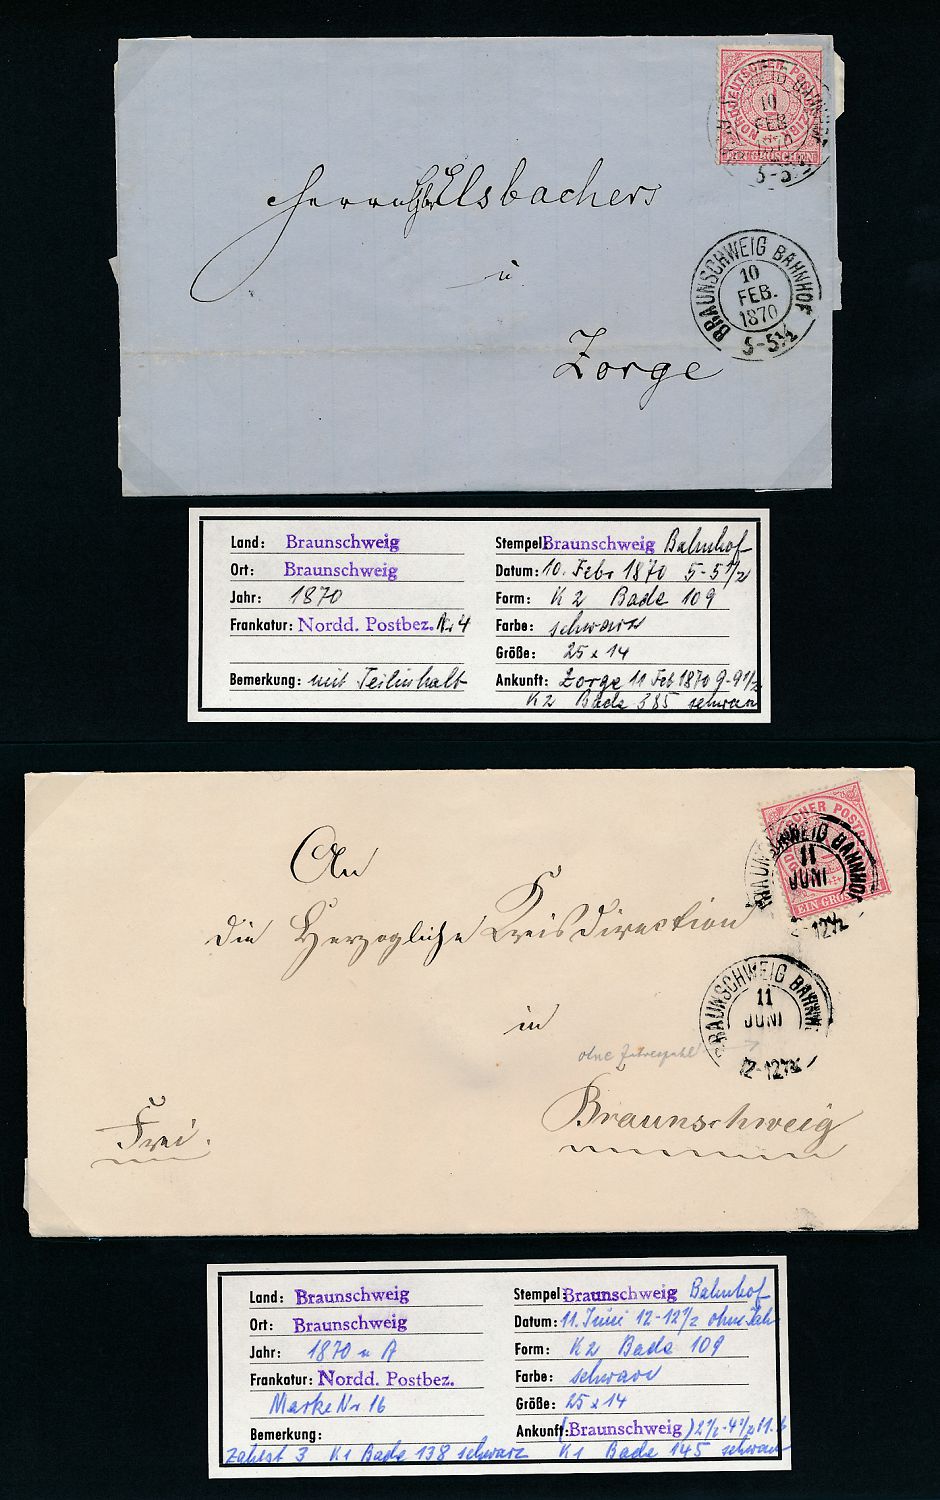 NORDDEUTSCHER POSTBEZIRK
EIN GROSCHEN
BRAUNSCHWEIG BAHNHOF
10
FEB.
1870
5-5½
Herren Elsbachers
u
BRAUNSCHWEIG BAHNHOF
10
FEB.
1870
5-5½
Zorge
Land: Braunschweig
Ort: Braunschweig
Jahr: 1870
Frankatur: Nordd. Postbez. Nr 4
Bemerkung: mit Teilinhalt
Stempel: Braunschweig Bahnhof
Datum: 10. Febr 1870 5-5 1/2
Form: K2 Bade 109
Farbe: schwarz
Größe: 25 x 14
Ankunft: Zorge 11 Feb 1870 9-9 1/2
K2 Bade 385 schwarz
EIN GROSCHEN
BRAUNSCHWEIG BAHNHOF
11
JUNI
12-12½
An
die Herzogliche Kreisdirection
in
BRAUNSCHWEIG BAHNH
11
JUNI
12-12½
ohne Jahreszahl
Braunschweig
Frei.
Land: Braunschweig
Ort: Braunschweig
Jahr: 1870 n A
Frankatur: Nordd. Postbez.
Marke Nr 16
Bemerkung:
Stempel: Braunschweig Bahnhof
Datum: 11. Juni 12-12 1/2 ohne Jah
Form: K2 Bade 109
Farbe: schwarz
Größe: 25 x 14
Ankunft: (Braunschweig) 2 1/2-4 1/2 11.6
3 K1 Bade 138 schwarz K1 Bade 145 schwarz